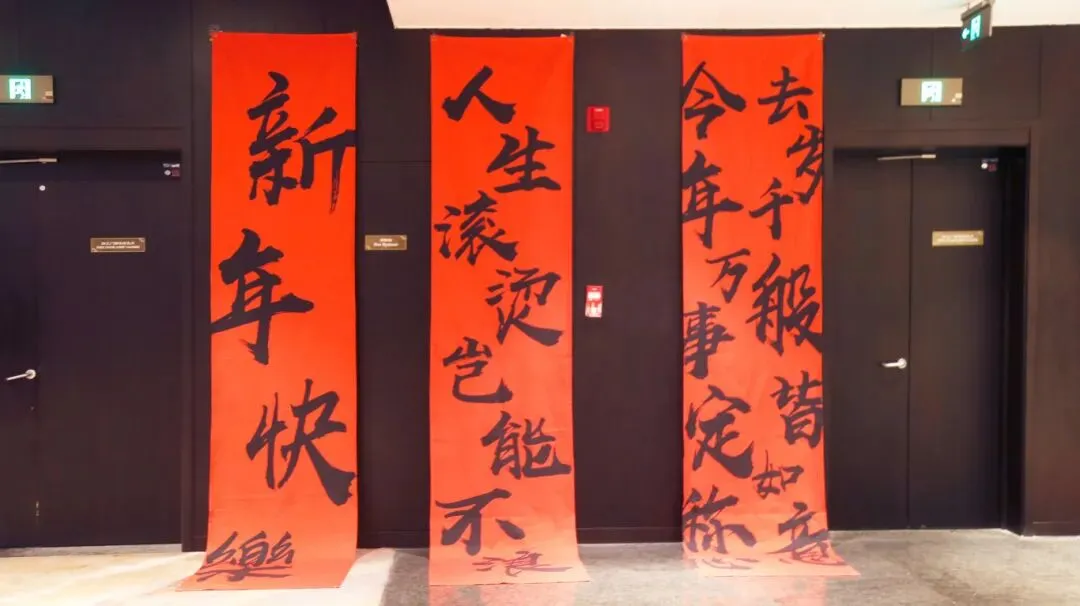 去岁千般皆如意
今年万事定称心
人生滚烫岂能不浪
新年快樂